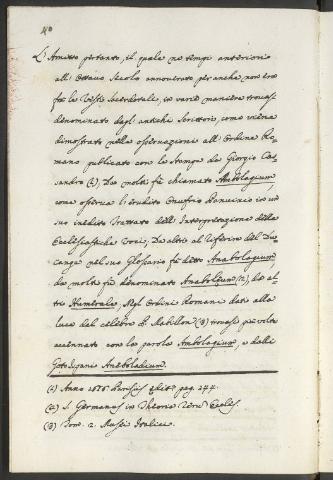 40
L'Amitto pertanto, il quale ne' tempi anteriori
all' Ottavo Secolo annoverato per anche non era
fra le Vesti Sacerdotali, in varie maniere trovasi
denominato dagli antichi Scrittori, come viene
dimostrato nelle osservazioni all' Ordine Ro=
mano publicato con le stampe da Giorgio Cas=
sandro (1), Da molti fù chiamato Anbolagium,
come osserva l' erudito Onufrio Panvinio in un
suo inedito Trattato dell' Interpretazione delle
Ecclesiastiche Voci; Da altri al riferire del Du=
cange nel suo Glossario fù detto Anabolagium
da molti fù denominato Anaboleum (2), da al=
tri Humerale, Negl' Ordini Romani dati alla
luce dal celebre P. Mabillon (3) trovasi più volte
accennato con la parola Ambolagium, e dalli
Anaboladium.
(1) Anno 1676 Parisiis edit. pag. 244.
(2) S. Germanus in Theoria Rerum Eccles.
(3) Tom. 2. Musei Italici.